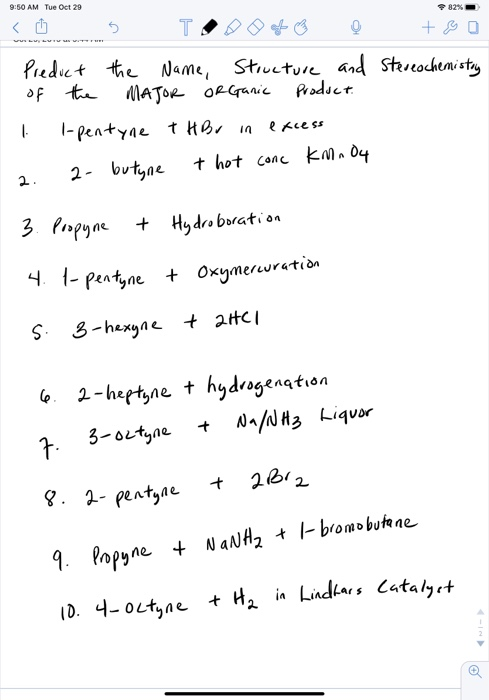 9:50 AM Tue Oct 29
82%
T
Predict the Name, Structure and Stereochemistry
of the MAJOR ORGANIC Product.
1. 1-pentyne + HBr in excess
2. 2-butyne + hot conc KMnO4
3. Propyne + Hydroboration
4. 1-pentyne + Oxymercuration
5. 3-hexyne + 2HCl
6. 2-heptyne + hydrogenation
7. 3-octyne + Na/NH3 Liquor
8. 2-pentyne + 2Br2
9. Propyne + NaNH2 + 1-bromobutane
10. 4-octyne + H2 in Lindhars Catalyst